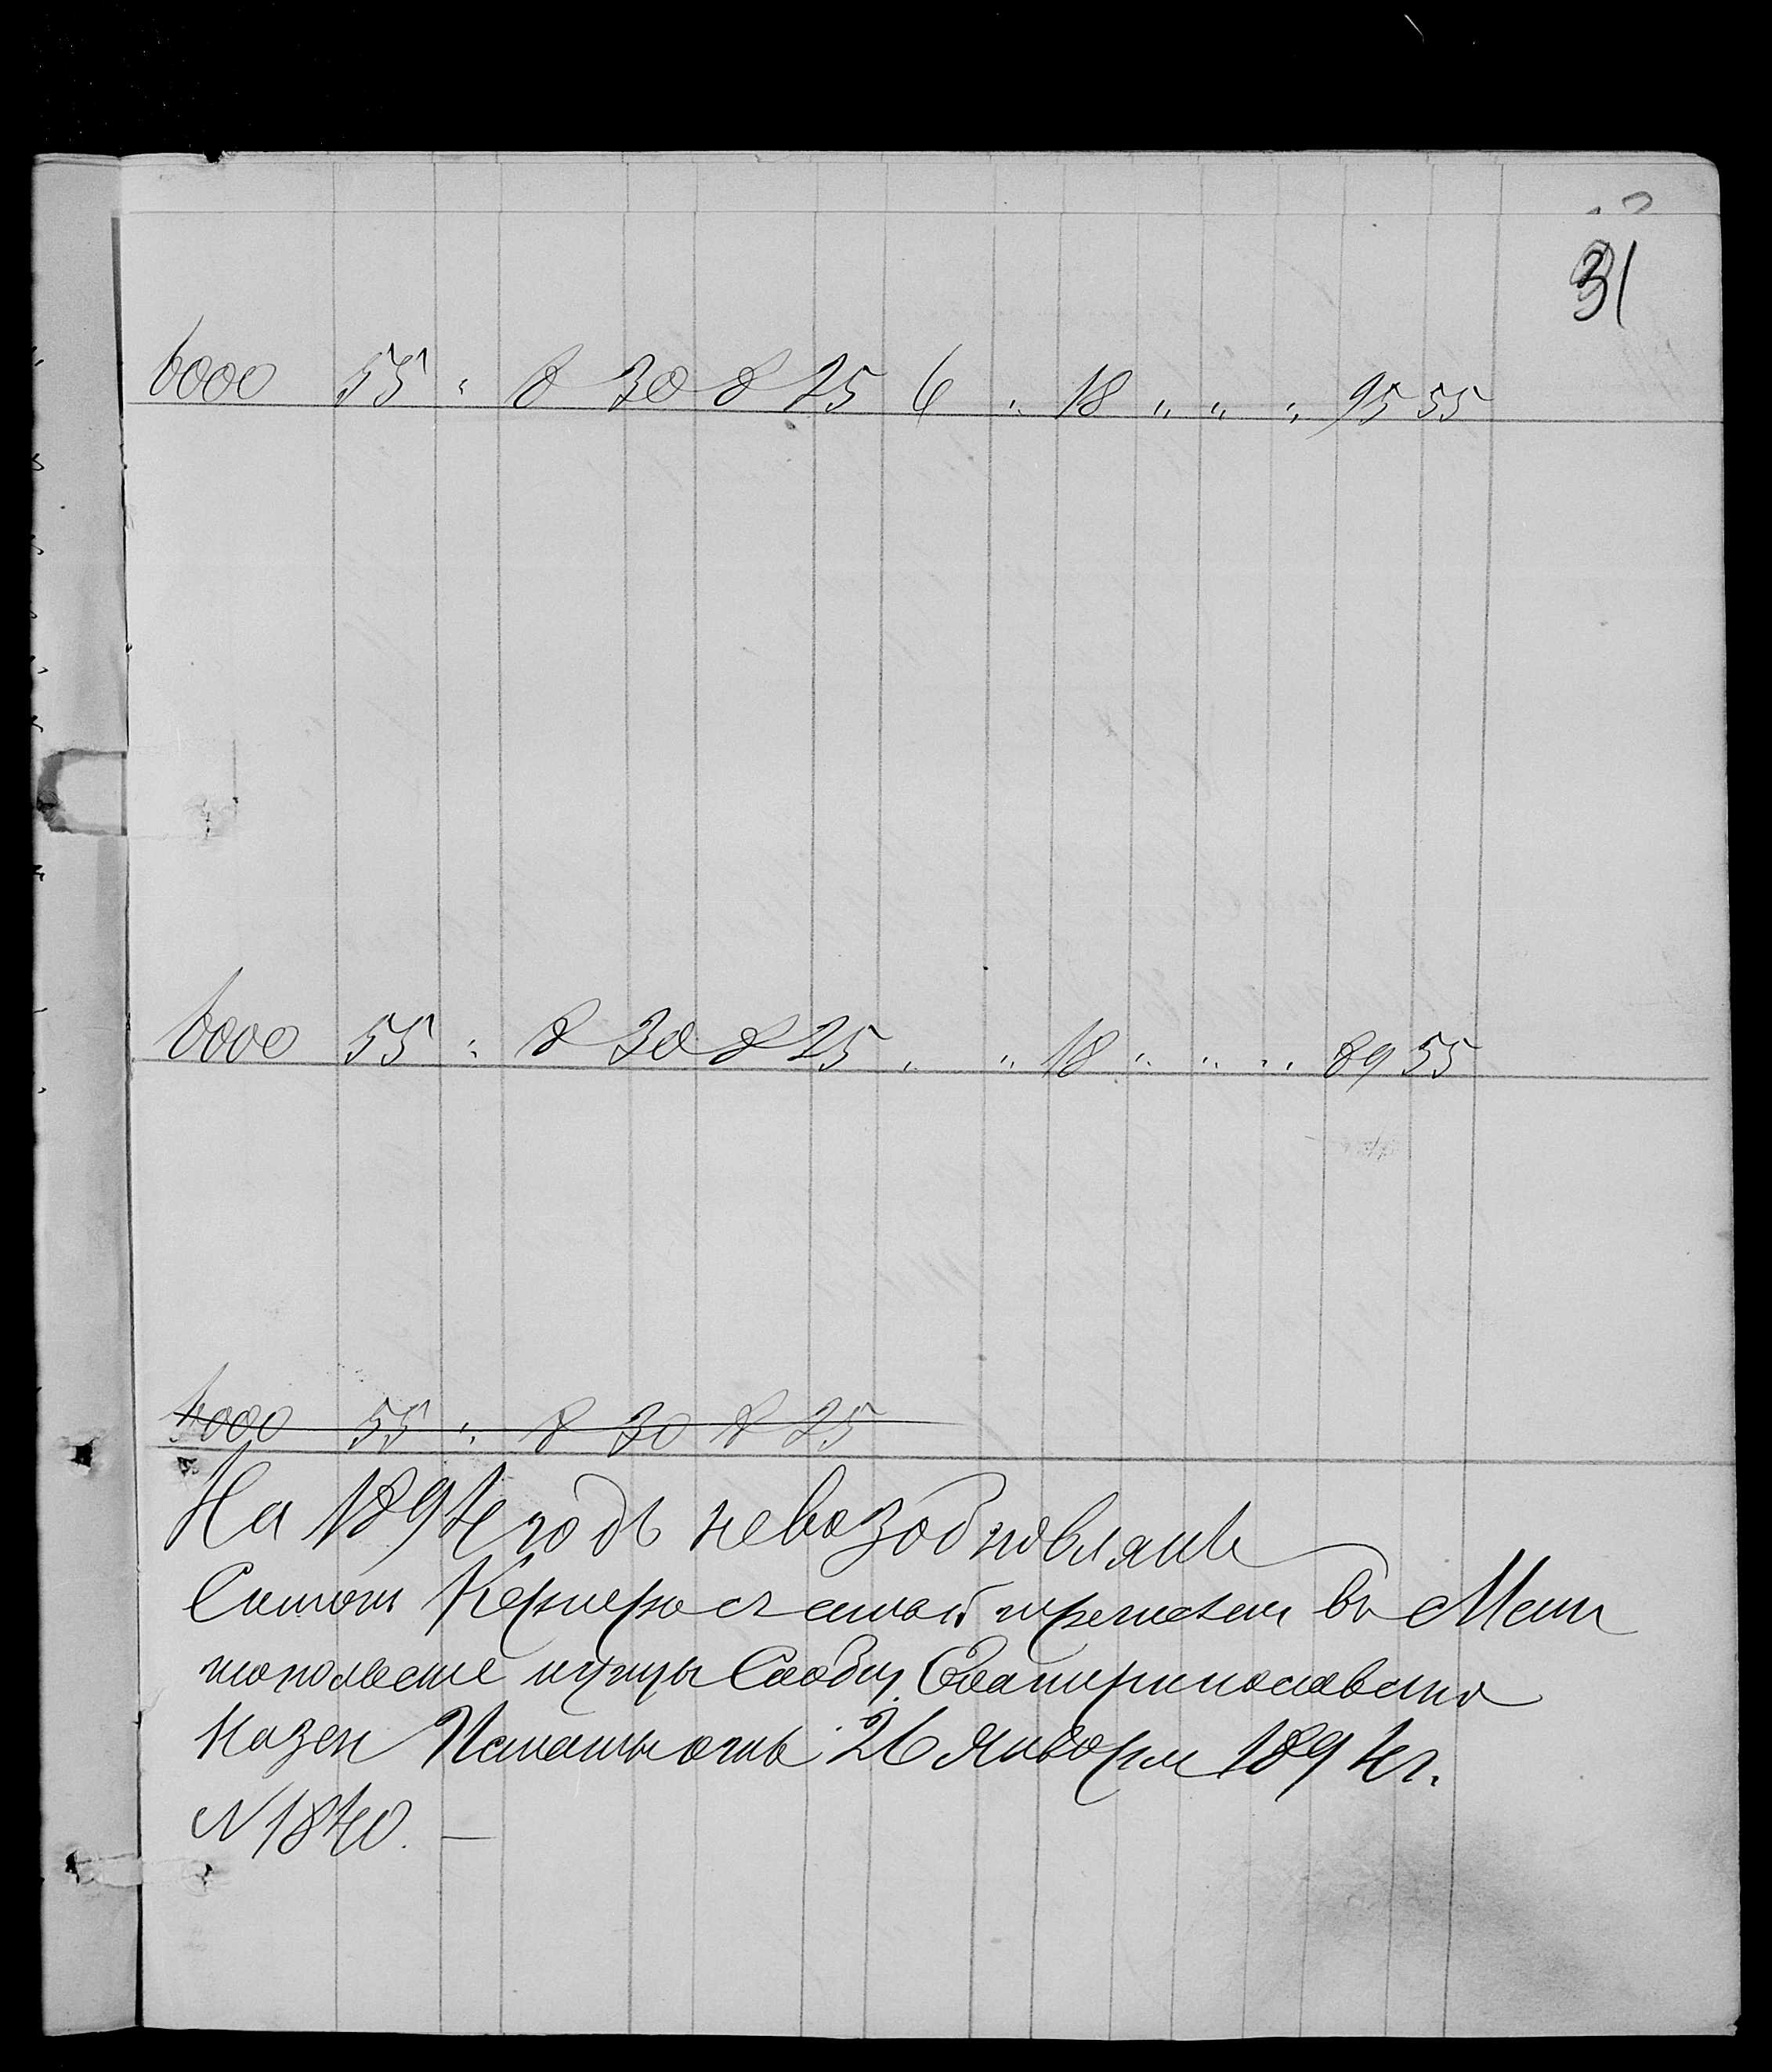 31
6000 55 " 8 30 8 25 6 " 18 " " " 95 55
6000 55 " 8 30 8 25 " " 18 " " " 89 55
6000 55 " 8 30 8 25
На 1894 годъ невозобновлянъ
Симонъ съ семьей перечислен въ Мели
топольские купцы Сообщ. Екатеринославской
Казен Палаты отъ 26 Января 1894 г.
N 1840. —